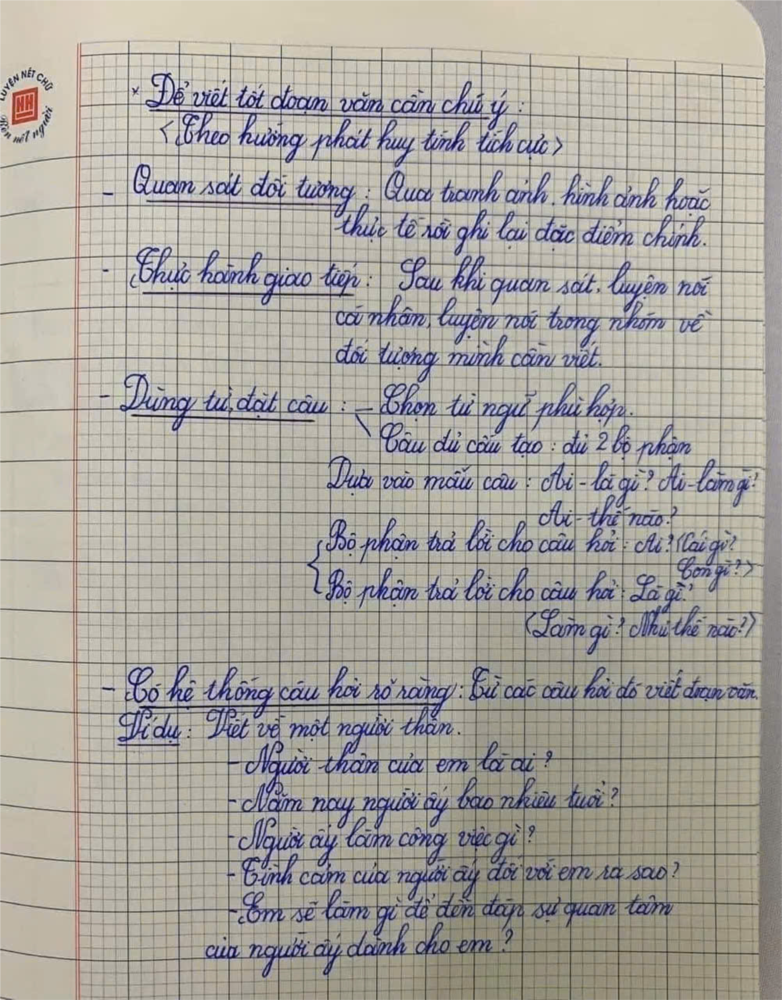 LUYỆN NÉT CHỮ
HH
Rèn nết người
* Để viết tốt đoạn văn cần chú ý :
<Theo hướng phát huy tính tích cực>
- Quan sát đối tượng : Qua tranh ảnh, hình ảnh hoặc
thực tế rồi ghi lại đặc điểm chính.
- Thực hành giao tiếp : Sau khi quan sát, luyện nói
cá nhân, luyện nói trong nhóm về
đối tượng mình cần viết.
- Dùng từ, đặt câu : - Chọn từ ngữ phù hợp.
Câu đủ cấu tạo : đủ 2 bộ phận
Dựa vào mẫu câu : Ai - là gì? Ai - làm gì?
Ai - thế nào?
Bộ phận trả lời cho câu hỏi : Ai? (Cái gì?
Con gì?>
Bộ phận trả lời cho câu hỏi : Là gì?
(Làm gì? Như thế nào?)
- Có hệ thống câu hỏi rõ ràng : Từ các câu hỏi đó viết đoạn văn.
Ví dụ : Viết về một người thân.
- Người thân của em là ai ?
- Năm nay người ấy bao nhiêu tuổi ?
- Người ấy làm công việc gì ?
- Tình cảm của người ấy đối với em ra sao ?
- Em sẽ làm gì để đền đáp sự quan tâm
của người ấy dành cho em ?